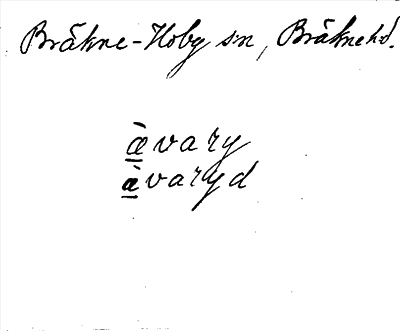 Bräkne-Hoby sn, Bräknehd.
æ̀vary
æ̀varyd